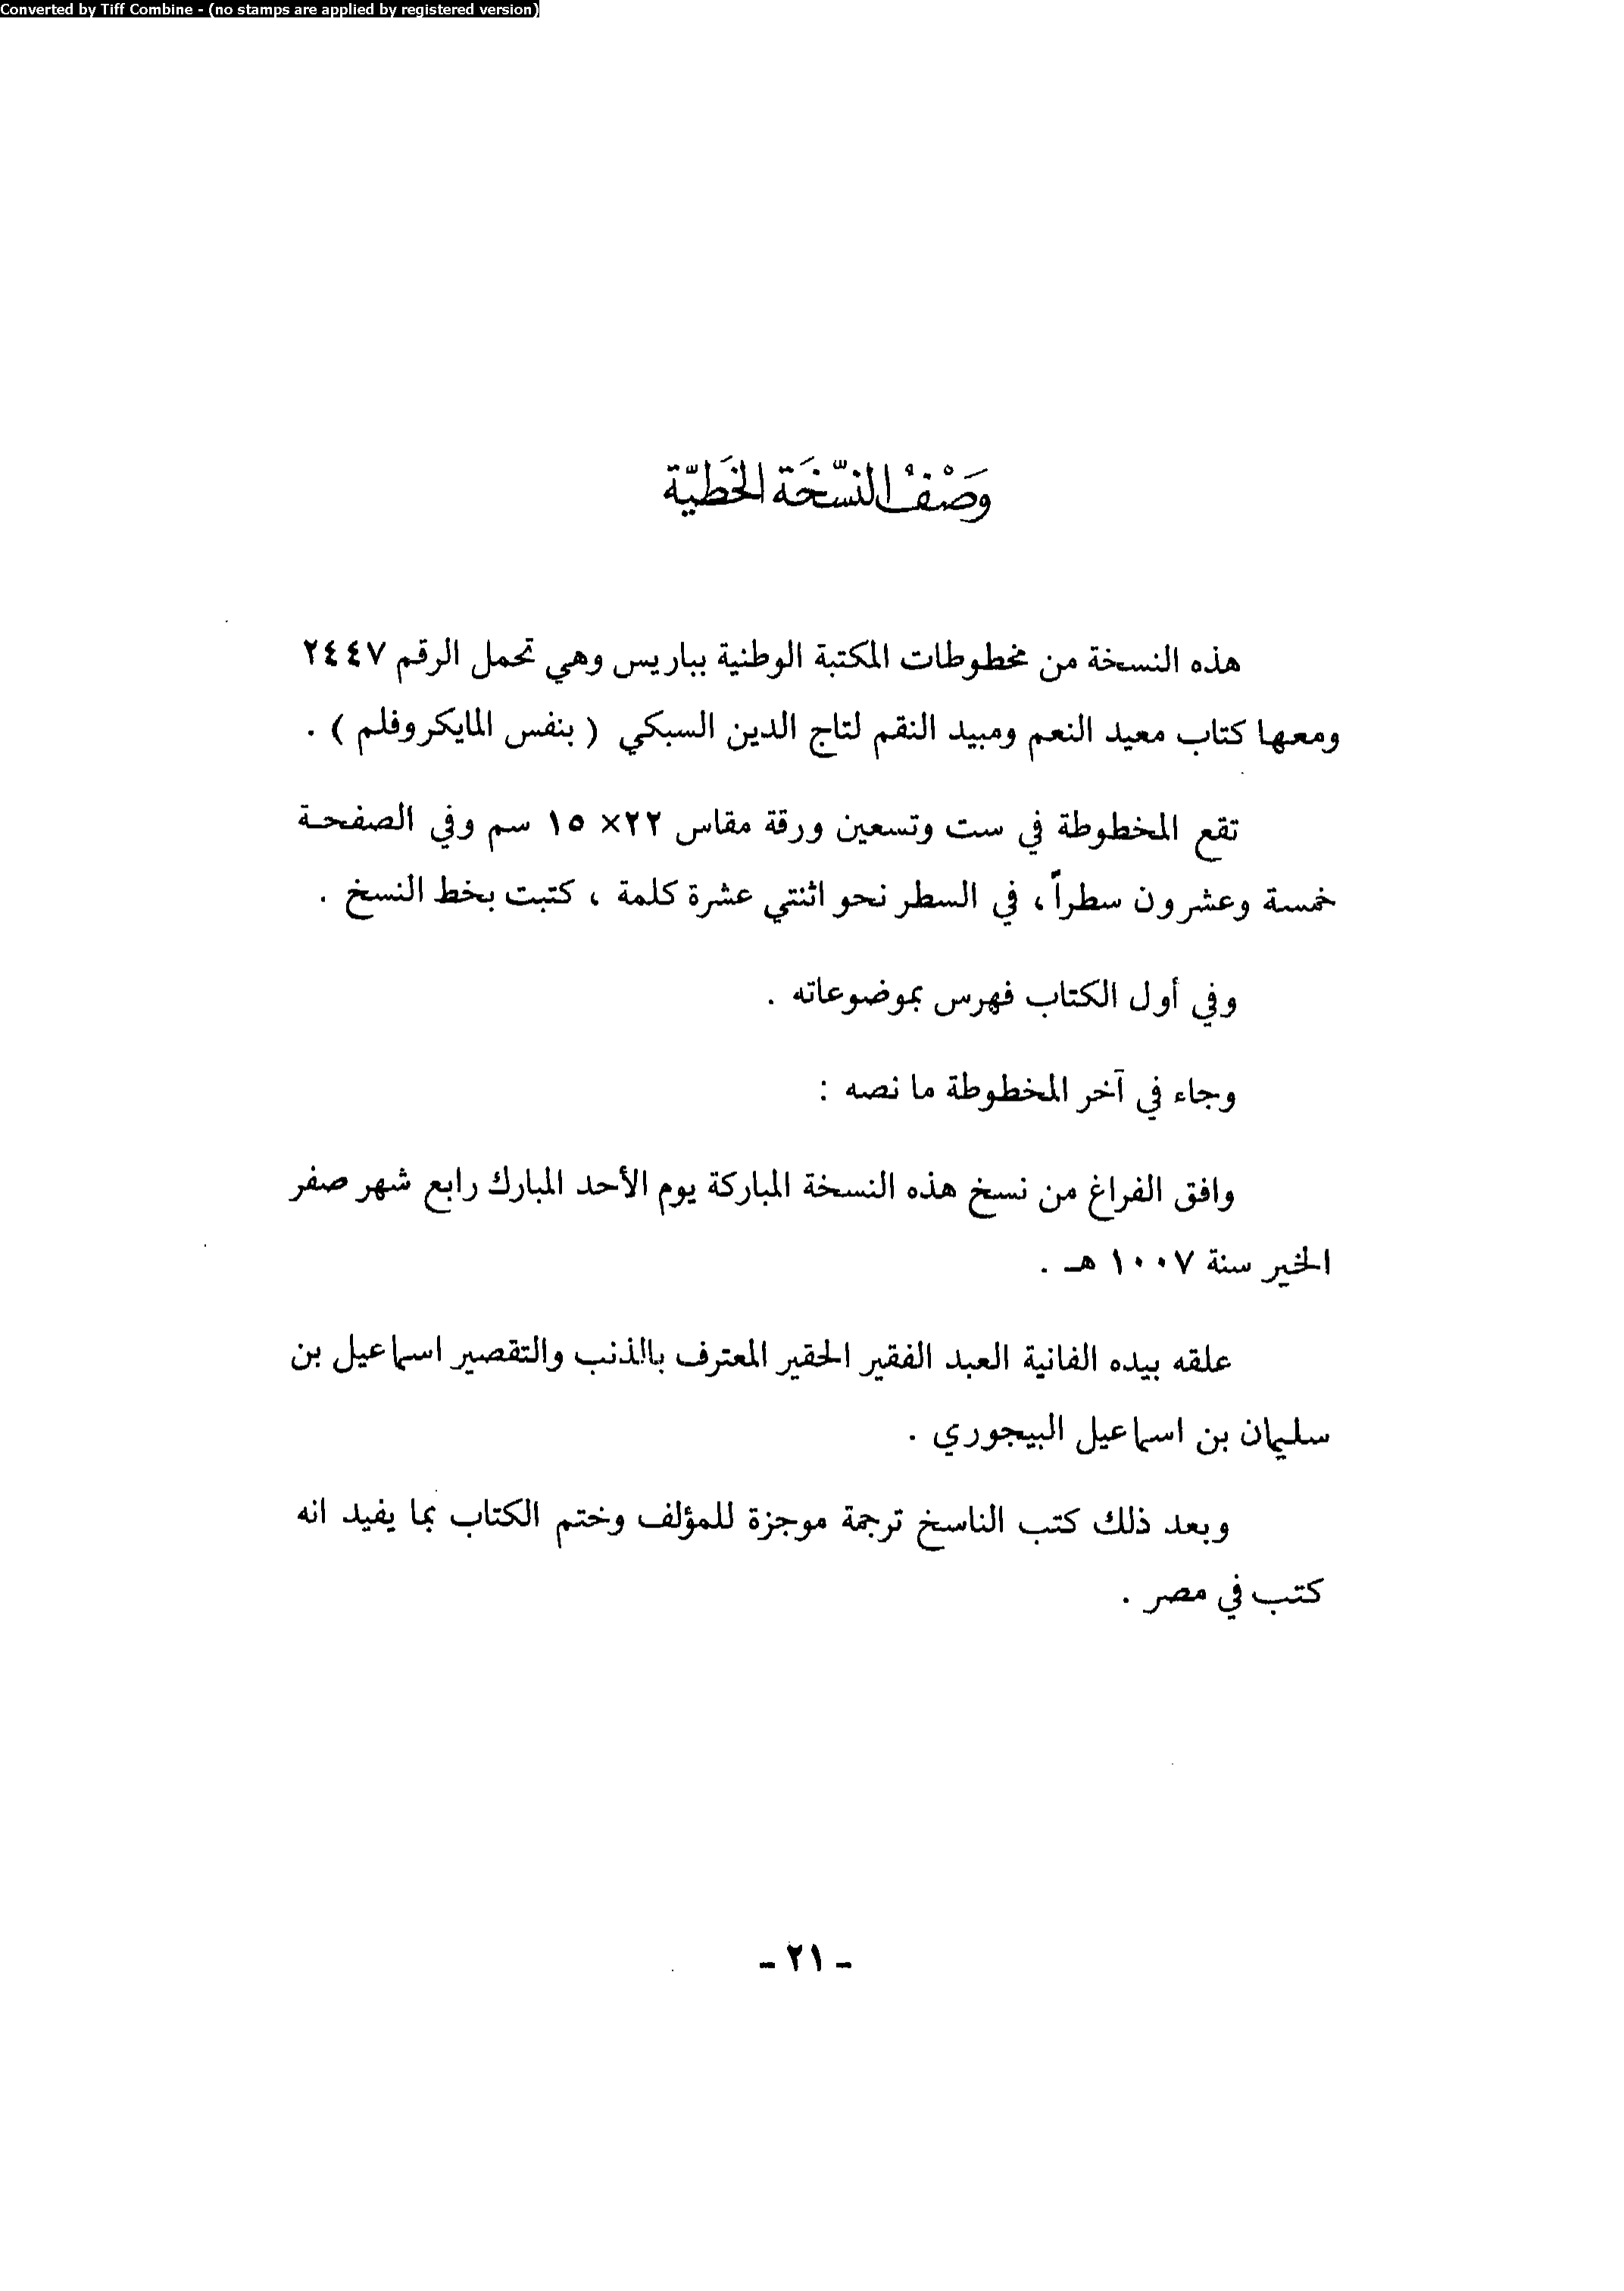 Converted by Tiff Combine - (no stamps are applied by registered version)
وَصْفُ النسّخَة الخَطيّة
هذه النسخة من مخطوطات المكتبة الوطنية بباريس وهي تحمل الرقم ٢٤٤٧
ومعها كتاب معيد النعم ومبيد النقم لتاج الدين السبكي ( بنفس المايكروفلم ) .
تقع المخطوطة في ست وتسعين ورقة مقاس ٢٢× ١٥ سم وفي الصفحـة
خمسة وعشرون سطراً ، في السطر نحو اثنتي عشرة كلمة ، كتبت بخط النسخ .
وفي أول الكتاب فهرس بموضوعاته .
وجاء في آخر المخطوطة ما نصه :
وافق الفراغ من نسخ هذه النسخة المباركة يوم الأحد المبارك رابع شهر صفر
الخير سنة ١٠٠٧ هـ .
علقه بيده الفانية العبد الفقير الحقير المعترف بالذنب والتقصير اسماعيل بن
سليمان بن اسماعيل البيجوري .
وبعد ذلك كتب الناسخ ترجمة موجزة للمؤلف وختم الكتاب بما يفيد انه
كتب في مصر .
- ٢١ -